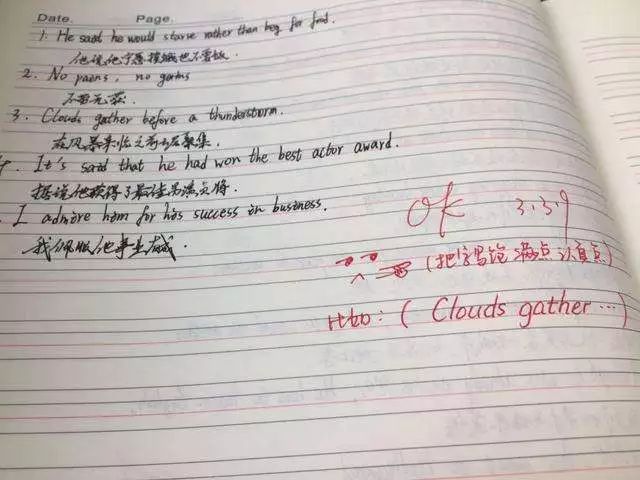 Date. Page.
1. He said he would starve rather than beg for food.
他说他宁愿挨饿也不要饭.
2. No pains, no gains
不劳无获.
3. Clouds gather before a thunderstorm.
在风暴来临之前云层聚集.
4. It's said that he had won the best actor award.
据说他获得了最佳男演员将.
I admire him for his success in business.
我佩服他事业有成.
OK 3.39
(把字写饱满点认真点)
比如: ( Clouds gather ...)